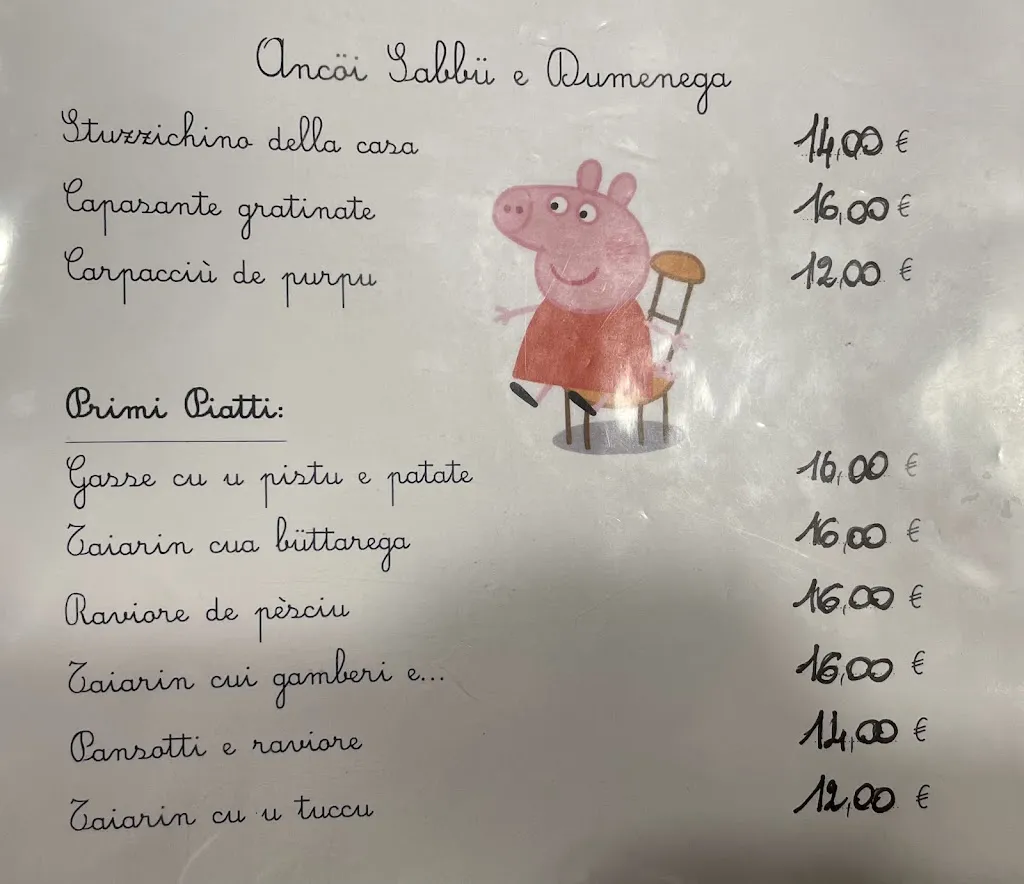 Ancöi Sabbü e Dumenega
Stuzzichino della casa 14,00 €
Capasante gratinate 16,00 €
Carpacciù de purpu 12,00 €
Primi Piatti:
Gasse cu u pistu e patate 16,00 €
Taiarin cua büttarega 16,00 €
Raviore de pèsciu 16,00 €
Taiarin cui gamberi e... 16,00 €
Pansotti e raviore 14,00 €
Taiarin cu u tuccu 12,00 €